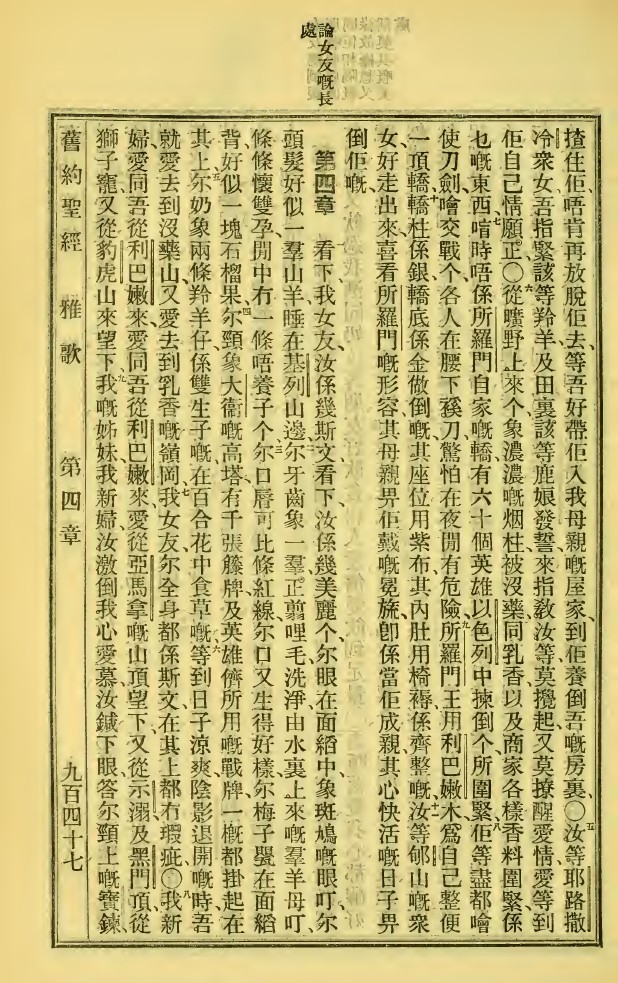 論女友嘅長
處
揸住佢唔肯再放脫佢去、等吾好帶佢入我母親嘅屋家、到佢養倒吾嘅房裏、〇汝等耶路撒
冷衆女、吾指緊該等羚羊、及田裏該等鹿娘發誓、來指教汝等莫攪起、又莫撩醒愛情、愛等到
佢自己情願正。〇從曠野上來个、象濃濃嘅烟柱、被沒藥同乳香、以及商家各樣香料圍緊、係
乜嘅東西、啱時唔係所羅門自家嘅轎、有六十個英雄、以色列中揀倒个、所圍緊、佢等盡都噲
使刀劍、噲交戰个、各人在腰下㧅刀、驚怕在夜間有危險、所羅門王用利巴嫩木爲自己整便
一頂轎、轎柱係銀、轎底係金做倒嘅、其座位用紫布、其內肚用椅褥、係齊整嘅、汝等郇山嘅衆
女、好走出來、喜看所羅門嘅形容、其母親畀佢戴嘅冕旒、卽係當佢成親、其心快活嘅日子畀
倒佢嘅、
第四章 看下我女友、汝係幾斯文、看下汝係幾美麗个、尔眼在面縚中、象斑鳩嘅眼叮、尔
頭髮好似一羣山羊、睡在基列山邊、尔牙齒象一羣正翦哩毛、洗淨由水裏上來嘅羣羊母叮、
條條懷雙孕、閒中冇一條唔養子个、尔口唇可比條紅線、尔口又生得好樣、尔梅子礐在面縚
背、好似一塊石榴果、尔頸象大衞嘅高塔、有千張籐牌、及英雄儕所用嘅戰牌、一概都掛起在
其上、尔奶象兩條羚羊仔、係雙生子嘅、在百合花中食草嘅、等到日子涼爽、陰影退開嘅時、吾
就愛去到沒藥山、又愛去到乳香嘅嶺岡、我女友、尔全身都係斯文、在其上都冇瑕疵、〇我新
婦、愛同吾從利巴嫩來、愛同吾從利巴嫩來、愛從亞馬拿嘅山頂望下、又從示溺及黑門頂、從
獅子竉、又從豹虎山來望下、我嘅姊妹、我新婦、汝激倒我心愛慕汝、鍼下眼、答尔頸上嘅寶鍊、
舊約聖經 雅歌 第四章 九百四十七